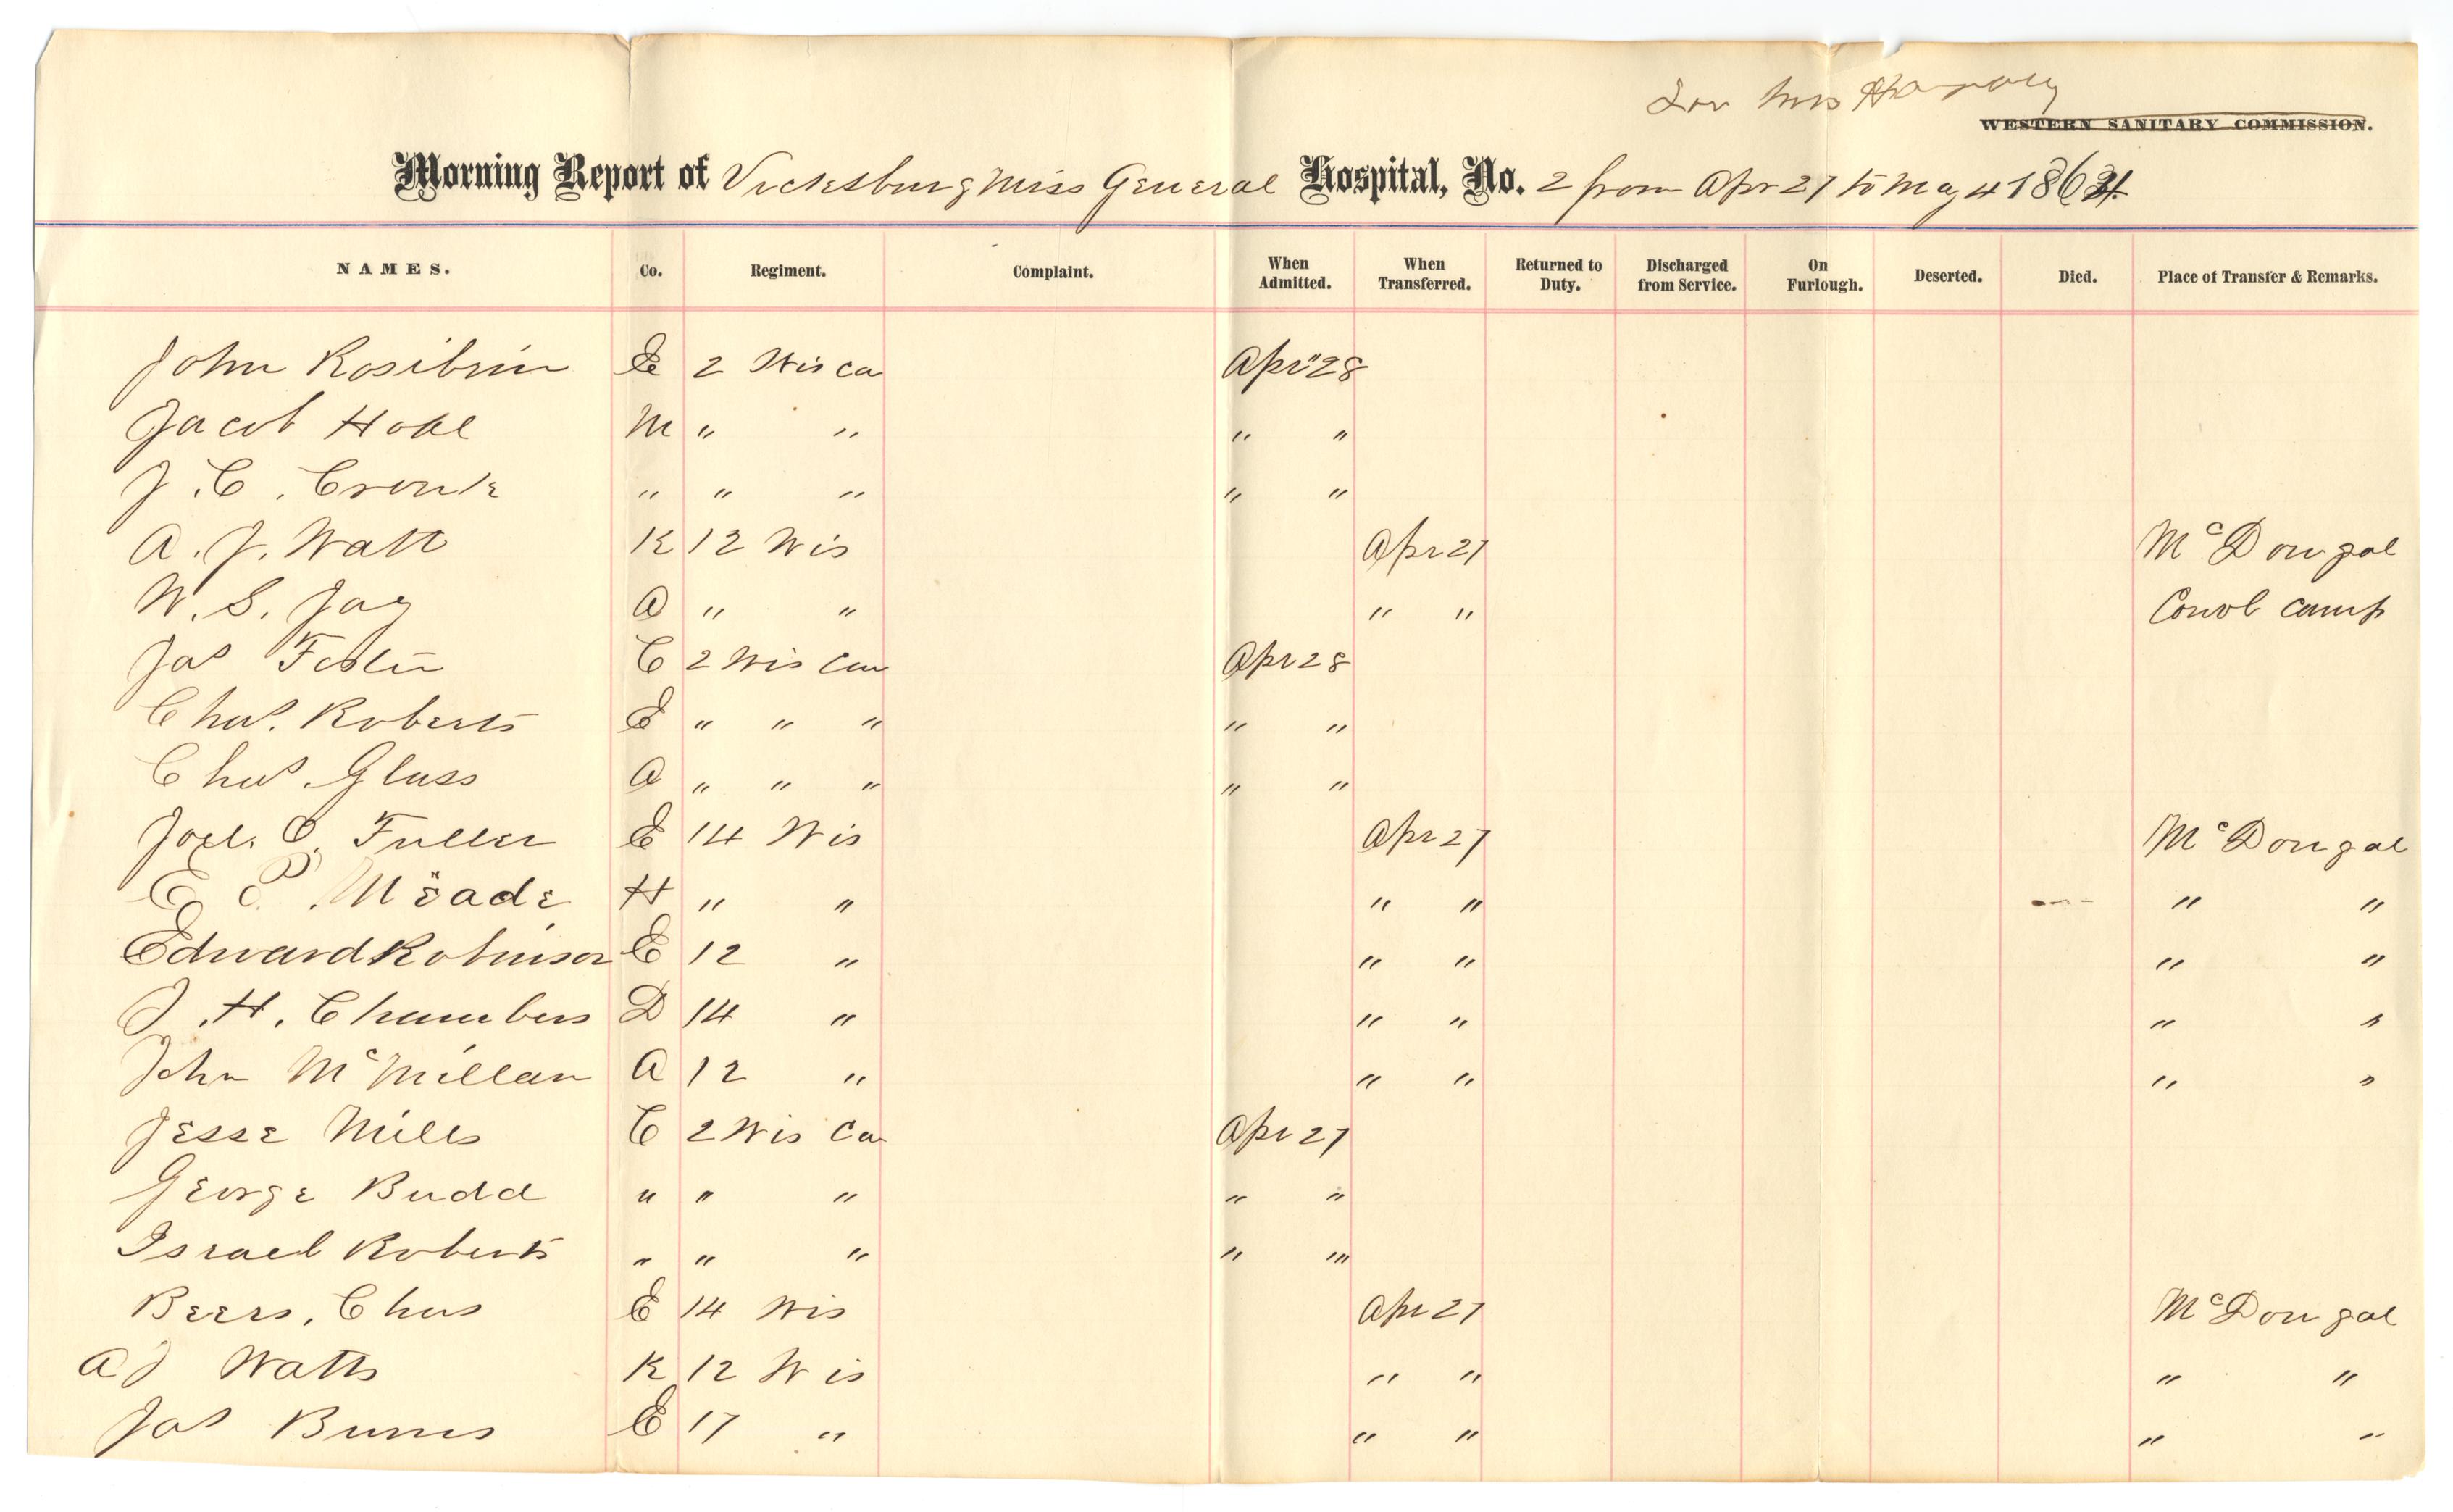 Mrs Harvey
WESTERN SANITARY COMMISSION.
Morning Report of Vicksburg Miss General Hospital, No. 2 from Apr 27 to May 4 1864
NAMES. Co. Regiment. Complaint. When Admitted. When Transferred. Returned to Duty. Discharged from Service. On Furlough. Deserted. Died. Place of Transfer & Remarks.
John E 2 Wis Ca Apr 28
Jacob M " " " "
J. C. Cronk " " " " "
A. J. Watt K 12 Wis Apr 27 McDougal
W. S. Jay A " " " " Convl camp
Jas Foster C 2 Wis Cav Apr 28
Chas. Roberts E " " " " "
Chas. Glass A " " " " "
Joel. O. Fuller E 14 Wis Apr 27 McDougal
E P. Meade H " " " " " "
Edward Robinson E 12 " " " " "
J. H. Chambers D 14 " " " " "
John McMillan A 12 " " " " "
Jesse Mills C 2 Wis Ca Apr 27
George Budd " " " " "
Israel Roberts " " " " "
Beers, Chas E 14 Wis Apr 27 McDougal
A J Watts K 12 Wis " " " "
Jas Burns E 17 " " " " "